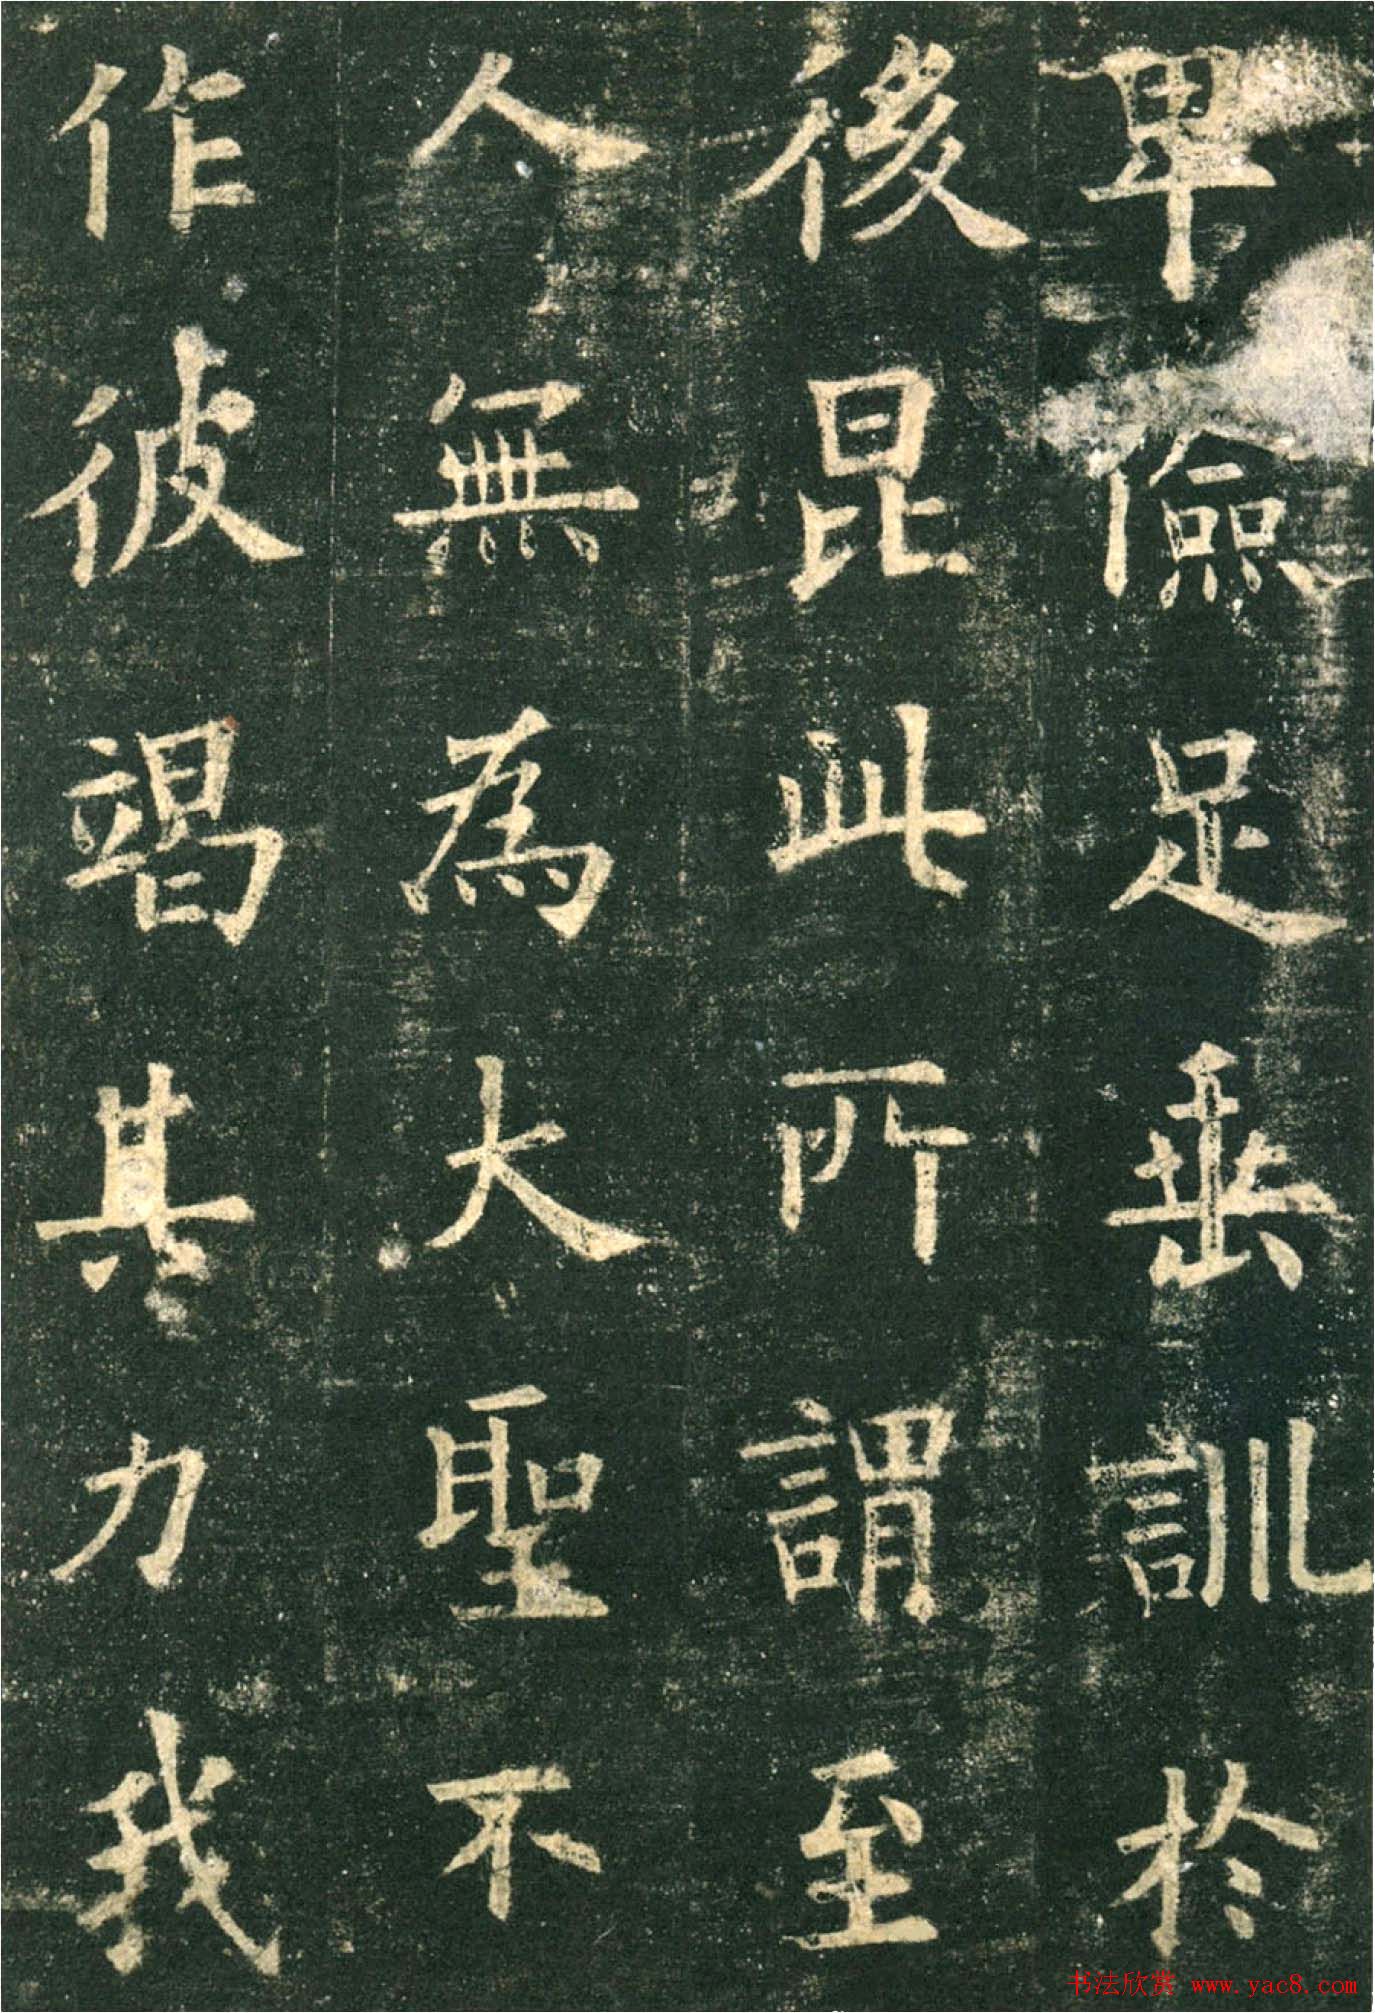 卑儉足垂訓於
後昆此所謂至
人無為大聖不
作彼竭其力我
书法欣赏 www.yac8.com